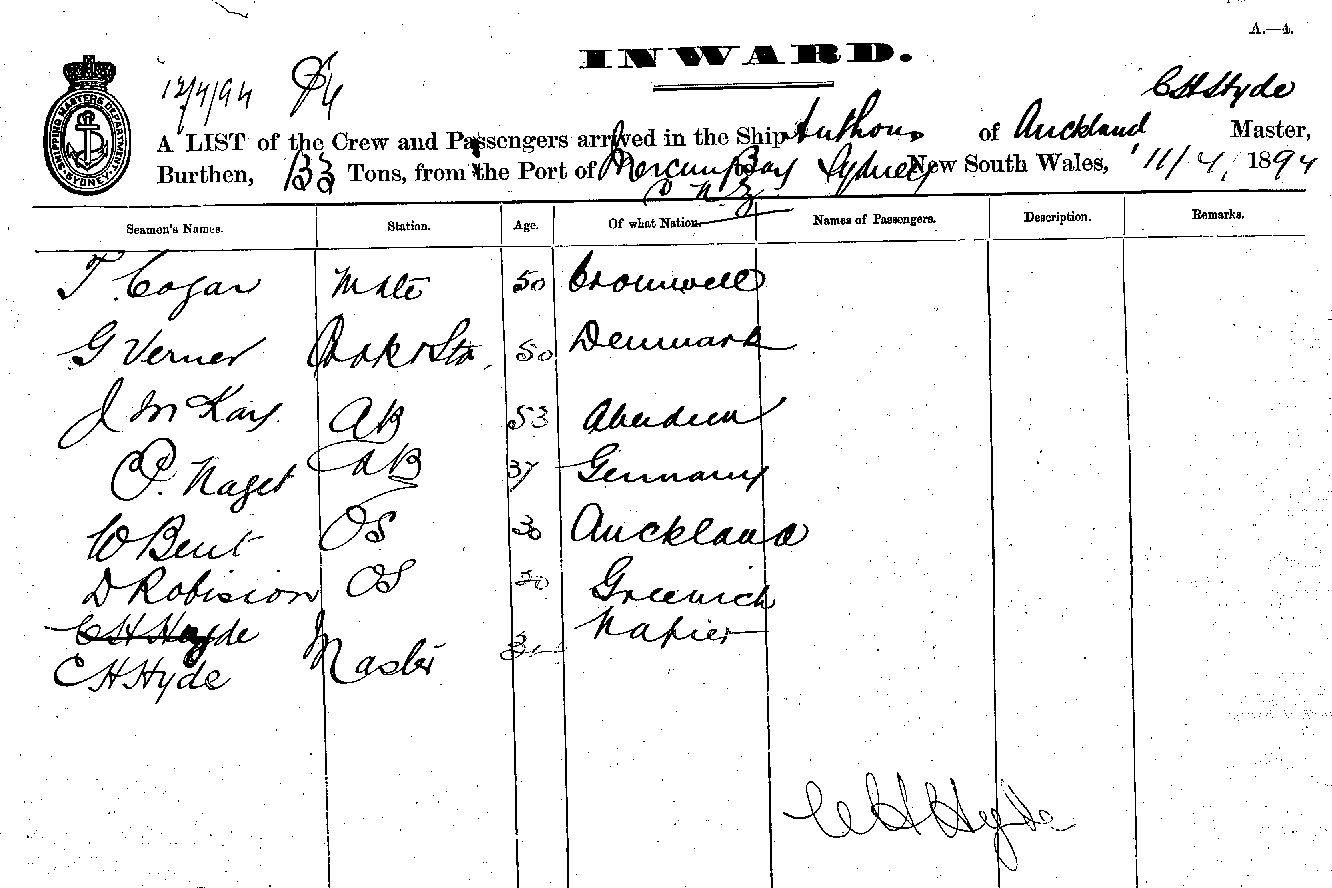 A.—4.
INWARD.
12/4/94
C H Hyde
A LIST of the Crew and Passengers arrived in the Ship of Auckland Master,
Burthen, 133 Tons, from the Port of Mercury Bay Sydney New South Wales, 11/4/, 1894
N. Z
SHIPPING MASTERS DEPARTMENT SYDNEY
Seamen's Names. Station. Age. Of what Nation. Names of Passengers. Description. Remarks.
T. Cogan Mate 50 Cromwell
G Verner Cook & Std. 50 Denmark
J McKay AB 53 Aberdeen
P. Naget AB 37 Germany
W Bent OS 30 Auckland
D Robision OS 20 Greenich
C H Hyde Napier
C H Hyde Master
C H Hyde